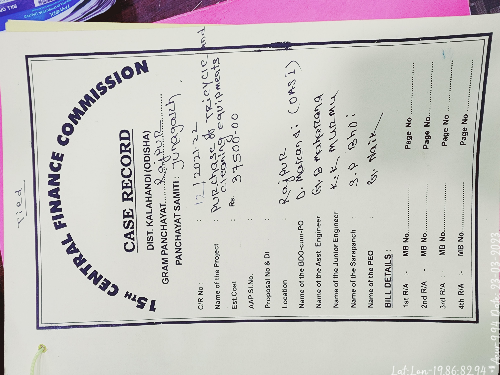 Tied
15TH CENTRAL FINANCE COMMISSION
CASE RECORD
DIST. KALAHANDI (ODISHA)
GRAM PANCHAYAT Rajpur
PANCHAYAT SAMITI: Junagarh
C/R No : 12/2021-22
Name of the Project : Purchase of Tricycle and
cleaning equipments
Est.Cost : Rs. 37500-00
AAP Sl.No. :
Proposal No & Dt :
Location : Rajpur
Name of the BDO-cum-PO : D. Malcandi (OAS-I)
Name of the Asst. Engineer :
Name of the Junior Engineer : K.K. Murmu
Name of the Sarapanch : S.P Bhoi
Name of the PEO : Naik
BILL DETAILS :
1st R/A - MB No. Page No
2nd R/A - MB No. Page No
3rd R/A - MB No. Page No
4th R/A - MB No. Page No
Lat Lon-19.86,82.94